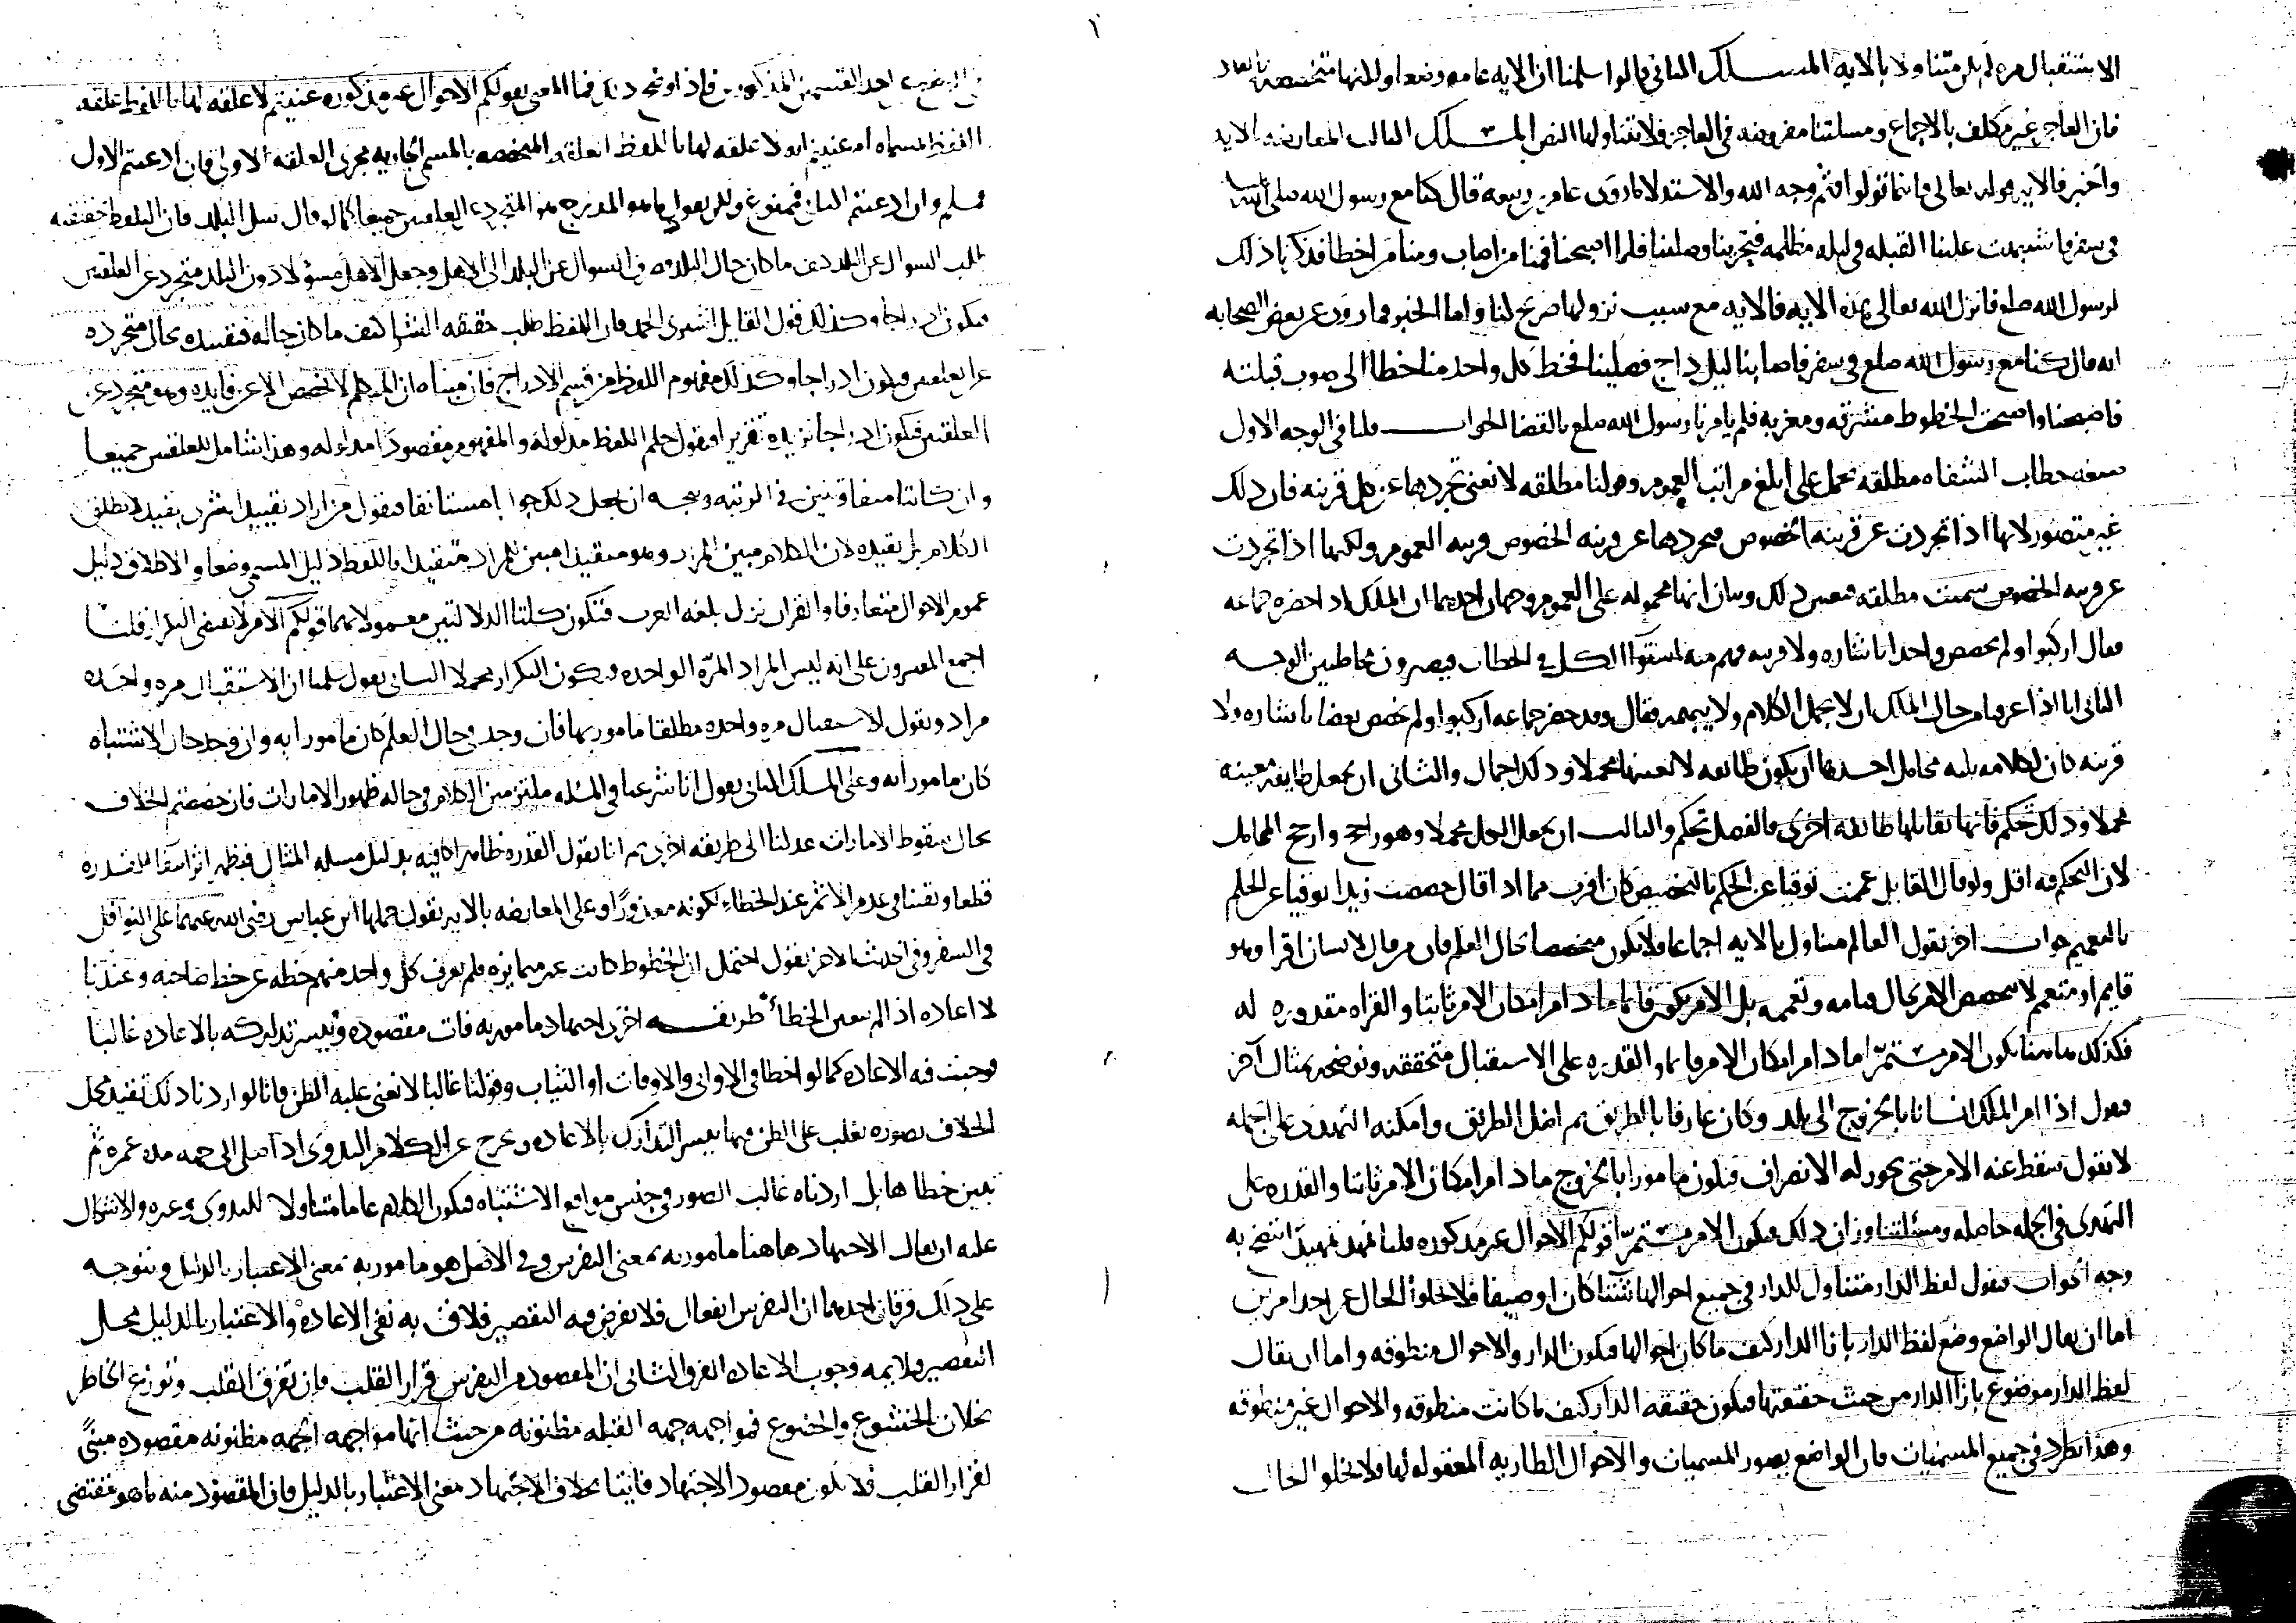 الاستقبال مره لم يكن متناولا بالايه المسلك الثاني قالوا سلمنا ان الايه عامه وضعا ولكنها متخصصه
فان العاجز غير مكلف بالاجماع ومسلتنا مفروضه في العاجز فلا تتناولها النص المسلك الثالث المعارضه بالايه
والخبر فالايه قوله تعالى فاينما تولوا فثم وجه الله والاستدلال ما روى عامر بن ربيعه قال كنا مع رسول الله صلى الله
في سفر فاشتبهت علينا القبله في ليله مظلمه فتحرينا وصلينا فلما اصبحنا فمنا من اصاب ومنا من اخطا فذكرنا ذلك
لرسول الله صلع فانزل الله تعالى هذه الايه فالايه مع سبب نزولها صريح لنا واما الخبر فما روى عن بعض الصحابه
انه قال كنا مع رسول الله صلع في سفر فاصابنا ليل داج فصلينا فخط كل واحد منا خطا الى صوب قبلته
فاصبحنا واصبحت الخطوط مشرقه ومغربه فلم يامرنا رسول الله صلع بالقضا الجواب قلنا في الوجه الاول
صيغه خطاب الشفاه مطلقه تحمل على ابلغ مراتب العموم وقولنا مطلقه لا نعني تجردها عن كل قرينه فان ذلك
غير متصور لانها اذا تجردت عن قرينه الخصوص فتجردها عن قرينه الخصوص قرينه العموم ولكنها اذا تجردت
عن قرينه الخصوص سميت مطلقه فنعني ذلك وبيان انها محموله على العموم وجهان احدهما ان الملك اذا حضره جماعه
فقال اركبوا ولم يخصص واحدا باشاره ولا قرينه فهم منه استوا الكل في الخطاب فيصيرون مخاطبين الوجه
الثاني انا اذا عرفنا من حال الملك ان لا يجمل الكلام ولا يبهمه فقال وقد حضر جماعه اركبوا ولم يخصص بعضا باشاره ولا
قرينه كان لكلامه ثلثه محامل احدها ان يكون طائفه لا بعينها محملا وذلك اجمال والثاني ان يجعل طايفه معينه
محملا وذلك تحكم فانها تقابلها طائفه اخرى فالفصل تحكم والثالث ان يجعل الكل محملا وهو راجح وارجح المحامل
لان التحكم فيه اقل ولو قال القايل عممت توقيا عن الحكم بالتخصيص كان اقرب مما اذا قال خصصت زيدا توقيا عن الحكم
بالتعميم جواب اخر نقول العالم متناول بالايه اجماعا فلا يكون متخصصا بحال العلم فان من قال لانسان اقرا وهو
قايم او متعمم لا يتخصص الامر بحال قيامه وتعممه بل الامر يكون قايما ما دام امكان الامر ثابتا والقراه مقدوره له
فكذلك هاهنا يكون الامر مستمرا ما دام امكان الامر قايما والقدره على الاستقبال متحققه ونوضحه بمثال اخر
نقول اذا امر الملك انسانا بالخروج الى بلد وكان عارفا بالطريق ثم اضل الطريق وامكنه التهدي على الجمله
لا نقول سقط عنه الامر حتى يجوز له الانصراف فيكون مامورا بالخروج ما دام امكان الامر ثابتا والقدره على
التهدي في الجمله حاصله ومسئلتنا وزان ذلك فيكون الامر مستمرا قولكم الاحوال غير مذكوره قلنا نمهد تمهيدا يتضح به
وجه الجواب فنقول لفظ الدار متناول للدار في جميع احوالها شتا كان او صيفا فلا يخلوا الحال عن احد امرين
اما ان يقال الواضع وضع لفظ الدار بازا الدار كيف ما كان احوالها فيكون الدار والاحوال منطوقه واما ان يقال
لفظ الدار موضوع بازا الدار من حيث حقيقتها فيكون حقيقه الدار كيف ما كانت منطوقه والاحوال غير منطوقه
وهذا يطرد في جميع المسميات فان الواضع يصور المسميات والاحوال الطاريه المعقوله لها فلا يخلوا الحال
احد القسمين المذكورين فاذا وضح ذلك فما المعني بقولكم الاحوال غير مذكوره عنيتم لا علقه لها باللفظ علقه
اللفظ بمسماه ام عنيتم انه لا علقه لها باللفظ العلقه المتخصصه بالمسمى الجاريه مجرى العلقه الاولى فان ادعيتم الاول
فمسلم وان ادعيتم الثاني فممنوع ولكن نقول ما هو المندرج هو المتجرد عن العلقتين جميعا كما لو قال سل البلد فان اللفظ حقيقه
طلب السوال عن البلد كيف ما كان حال البلد وصرف السوال عن البلد الى الاهل وجعل الاهل مسؤلا دون البلد متجرد عن العلقتين
فيكون ادراجا وكذلك قول القايل اشترى الحمد فان اللفظ طلب حقيقه الشرا كيف ما كان حاله فتقييده بحال متجرده
عن العلقتين فيكون ادراجا وكذلك مفهوم اللفظ من قسم الادراج فان مبناه ان المتكلم لا يخصص الا عن فايده وهو متجرد عن
العلقتين فيكون ادراجا نزيده تقريرا فنقول حكم اللفظ مدلوله والمفهوم مقصود امدلوله وهذا شامل للعلقتين جميعا
وان كانتا متفاوتتين في الرتبه ويتجه ان يجعل ذلك جوابا مستانفا فنقول من اراد تقييد امر بقيد لا يطلق
الكلام بل يقيده لان الكلام مبين المراد وهو متقيد فمبين المراد متقيد واللفظ دليل المسمى وضعا والاطلاق دليل
عموم الاحوال متعارفا والقران نزل بلغه العرب فتكون كلتا الدلالتين معمولا بهما قولكم الامر لا يقتضي التكرار قلنا
اجمع المفسرون على انه ليس المراد المره الواحده فيكون التكرار محملا الثاني نقول سلمنا ان الاستقبال مره واحده
مراد ونقول الاستقبال مره واحده مطلقا مامور بها فان وجد في حال العلم كان مامورا به وان وجد حال الاشتباه
كان مامورا به وعلى المسلك الثاني نقول انا شرعنا في المسله ملتزمين الكلام في حاله ظهور الامارات فان خصصتم الخلاف
بحال سقوط الامارات عدلنا الى طريقه اخرى ثم انا نقول القدره ظاهرا كافيه بدليل مسله المثال فيظهر اثر انتفا القدره
قطعا ويقينا في عدم الاثم عند الخطاء لكونه معذورا وعلى المعارضه بالايه نقول حملها ابن عباس رضي الله عنهما على النوافل
في السفر وفي الحديث الاخر نقول احتمل ان الخطوط كانت غير متمايزه فلم يعرف كل واحد منهم خطه عن خط صاحبه وعندنا
لا اعاده اذا لم يتعين الخطا طريقه اخرى اجتهاد مامور به فات مقصوده وتيسر تداركه بالاعاده غالبا
فوجبت فيه الاعاده كما لو اخطا في الاواني والاوقات او الثياب وقولنا غالبا لا نعني غلبه الظن فانا لو اردنا ذلك تقيد محل
الخلاف بصوره تغلب على الظن فيها تيسر التدارك بالاعاده ويخرج عن الكلام البدوي اذا صلى الى جهه مده عمره ثم
تعين خطاها بل اردناه غالب الصور في جنس مواقع الاشتباه فيكون الكلام عاما متناولا للبدوي وغيره والاشكال
عليه ان يقال الاجتهاد هاهنا مامور به بمعنى التفرس وفي الاصل هو مامور به بمعنى الاعتبار بالدليل ويتوجه
على ذلك فرقان احدهما ان التفرس انفعال فلا يفرض فيه التقصير فلاق به نفي الاعاده والاعتبار بالدليل محل
التقصير فلايمه وجوب الاعاده الفرق الثاني ان المقصود من التفرس قرار القلب فان تفرق القلب وتوزع الخاطر
يخلان الخشوع والخضوع فمواجهه جهه القبله مظنونه من حيث انها مواجهه الجهه مظنونه مقصوده مبني
لقرار القلب فلا يكون مقصود الاجتهاد فايتا بخلاف الاجتهاد بمعنى الاعتبار بالدليل فان المقصود منه ما هو مقتضى